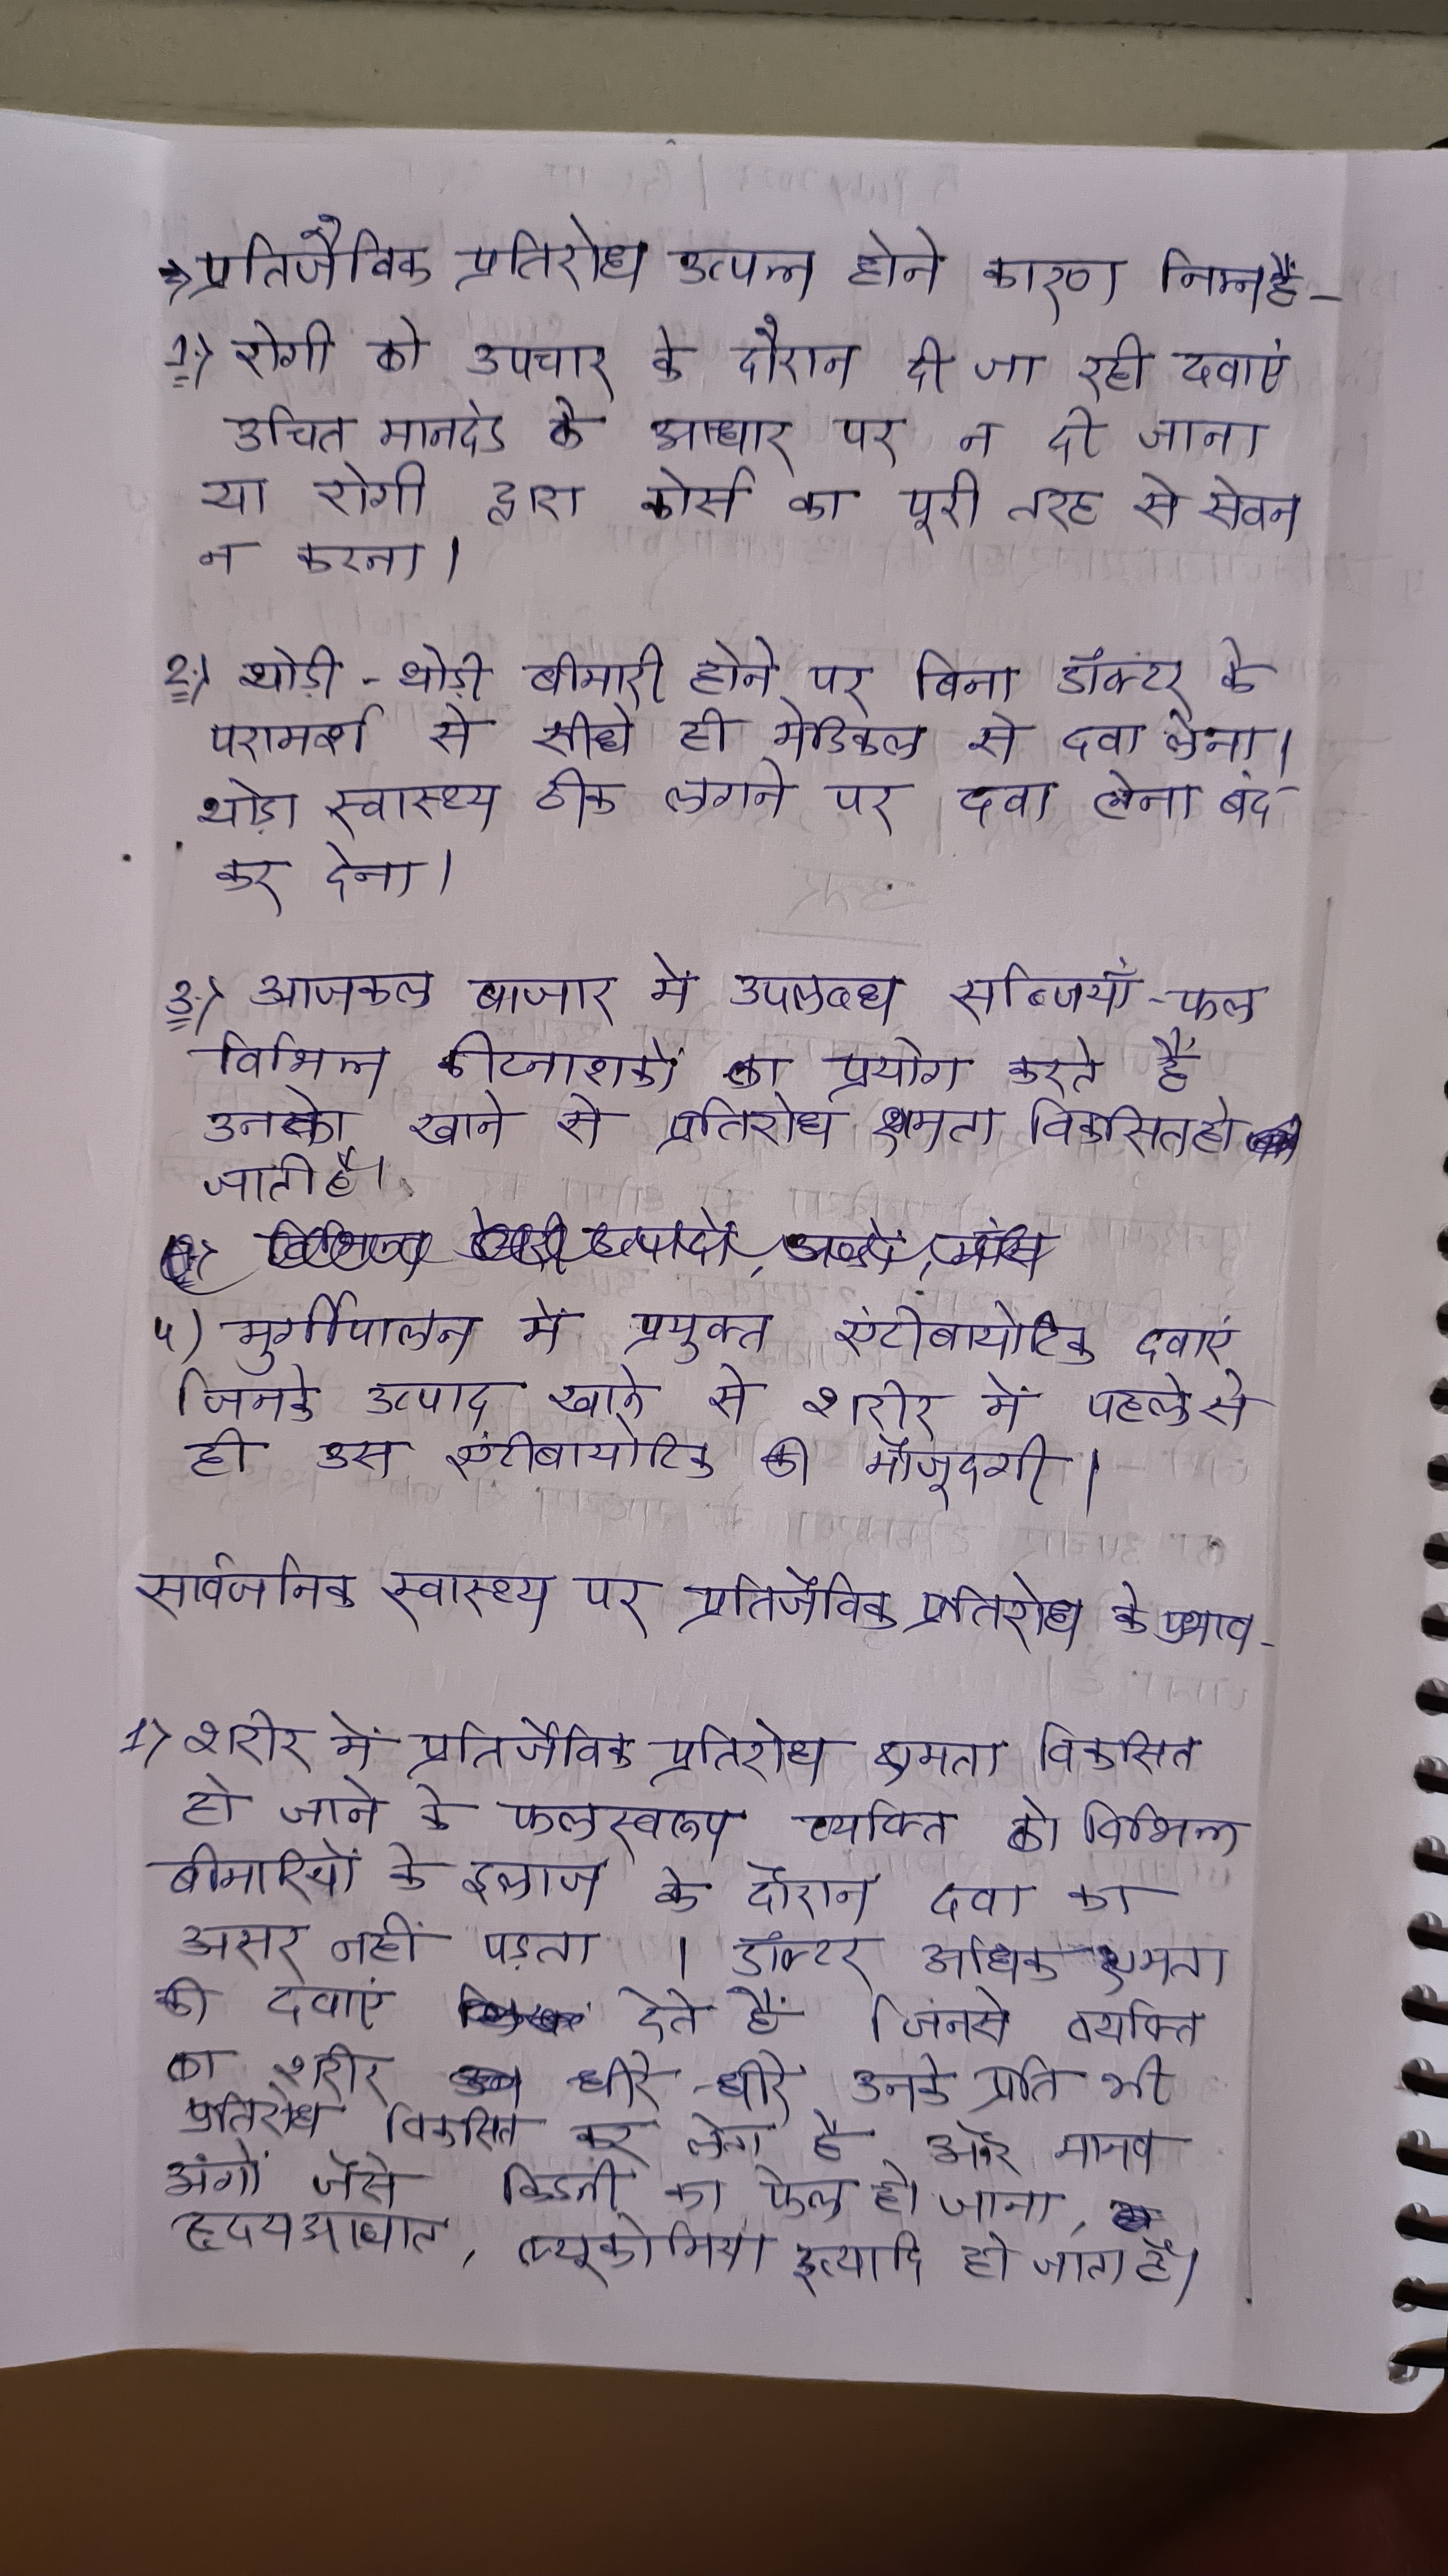 → प्रतिजैविक प्रतिरोध उत्पन्न होने कारण निम्न हैं-
1.) रोगी को उपचार के दौरान दी जा रही दवाएं
उचित मानदंड के आधार पर न दी जाना
या रोगी द्वारा कोर्स का पूरी तरह से सेवन
न करना।
2.) थोड़ी-थोड़ी बीमारी होने पर बिना डॉक्टर के
परामर्श से सीधे ही मेडिकल से दवा लेना।
थोड़ा स्वास्थ्य ठीक लगने पर दवा लेना बंद
कर देना।
3.) आजकल बाजार में उपलब्ध सब्जियाँ-फल
विभिन्न कीटनाशकों का प्रयोग करते हैं
उनको खाने से प्रतिरोध क्षमता विकसित हो
जाती है।
4) मुर्गीपालन में प्रयुक्त एंटीबायोटिक दवाएं
जिनके उत्पाद खाने से शरीर में पहले से
ही उस एंटीबायोटिक की मौजूदगी।
सार्वजनिक स्वास्थ्य पर प्रतिजैविक प्रतिरोध के प्रभाव-
1) शरीर में प्रतिजैविक प्रतिरोध क्षमता विकसित
हो जाने के फलस्वरूप व्यक्ति को विभिन्न
बीमारियों के इलाज के दौरान दवा का
असर नहीं पड़ता । डॉक्टर अधिक क्षमता
की दवाएं देते हैं जिनसे व्यक्ति
का शरीर धीरे-धीरे उनके प्रति भी
प्रतिरोध विकसित कर लेता है और मानव
अंगों जैसे किडनी का फेल हो जाना,
हृदयआघात, ल्यूकोमिया इत्यादि हो जाता है।